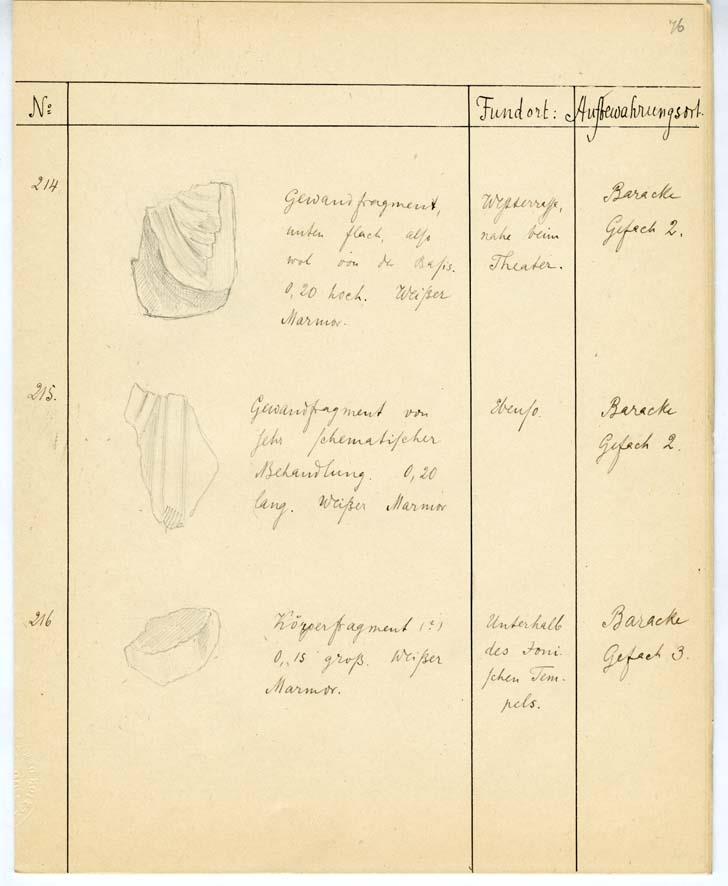 76
No: Fundort: Aufbewahrungsort.
214
Gewandfragment,
unten flach, also
wol von der Basis.
0,20 hoch. Weißer
Marmor.
Westterrasse,
nahe beim
Theater.
Baracke
Gefach 2.
215.
Gewandfragment von
sehr schematischer
Behandlung. 0,20
lang. Weißer Marmor
Ebenso.
Baracke
Gefach 2.
216
Körperfragment (?)
0,15 groß. Weißer
Marmor.
Unterhalb
des Joni-
schen Tem-
pels.
Baracke
Gefach 3.